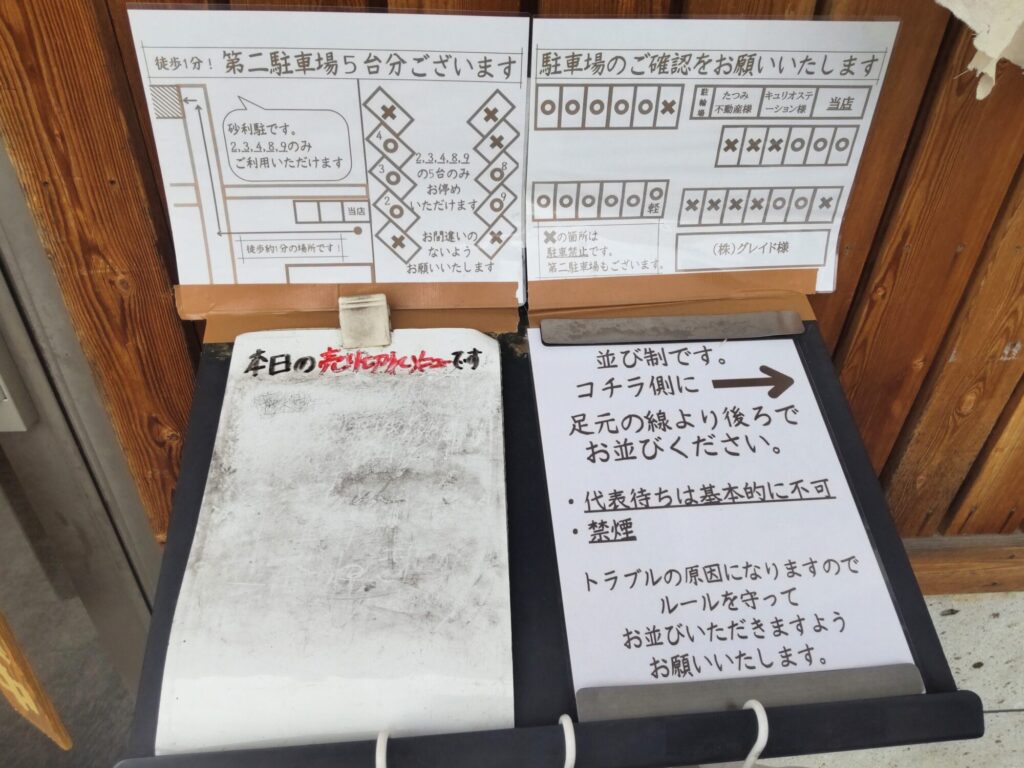 徒歩1分！ 第二駐車場5台分ございます
砂利駐です。
2,3,4,8,9のみ
ご利用いただけます
当店
徒歩約1分の場所です！
4
3
2
8
9
2,3,4,8,9
の5台のみ
お停め
いただけます
お間違いの
ないよう
お願いいたします
駐車場のご確認をお願いいたします
駐輪場
たつみ
不動産様
キュリオステ
ーション様
当店
軽
×の箇所は
駐車禁止です。
第二駐車場もございます。
(株)グレイド様
本日の売り切れメニューです
並び制です。
コチラ側に →
足元の線より後ろで
お並びください。
・代表待ちは基本的に不可
・禁煙
トラブルの原因になりますので
ルールを守って
お並びいただきますよう
お願いいたします。